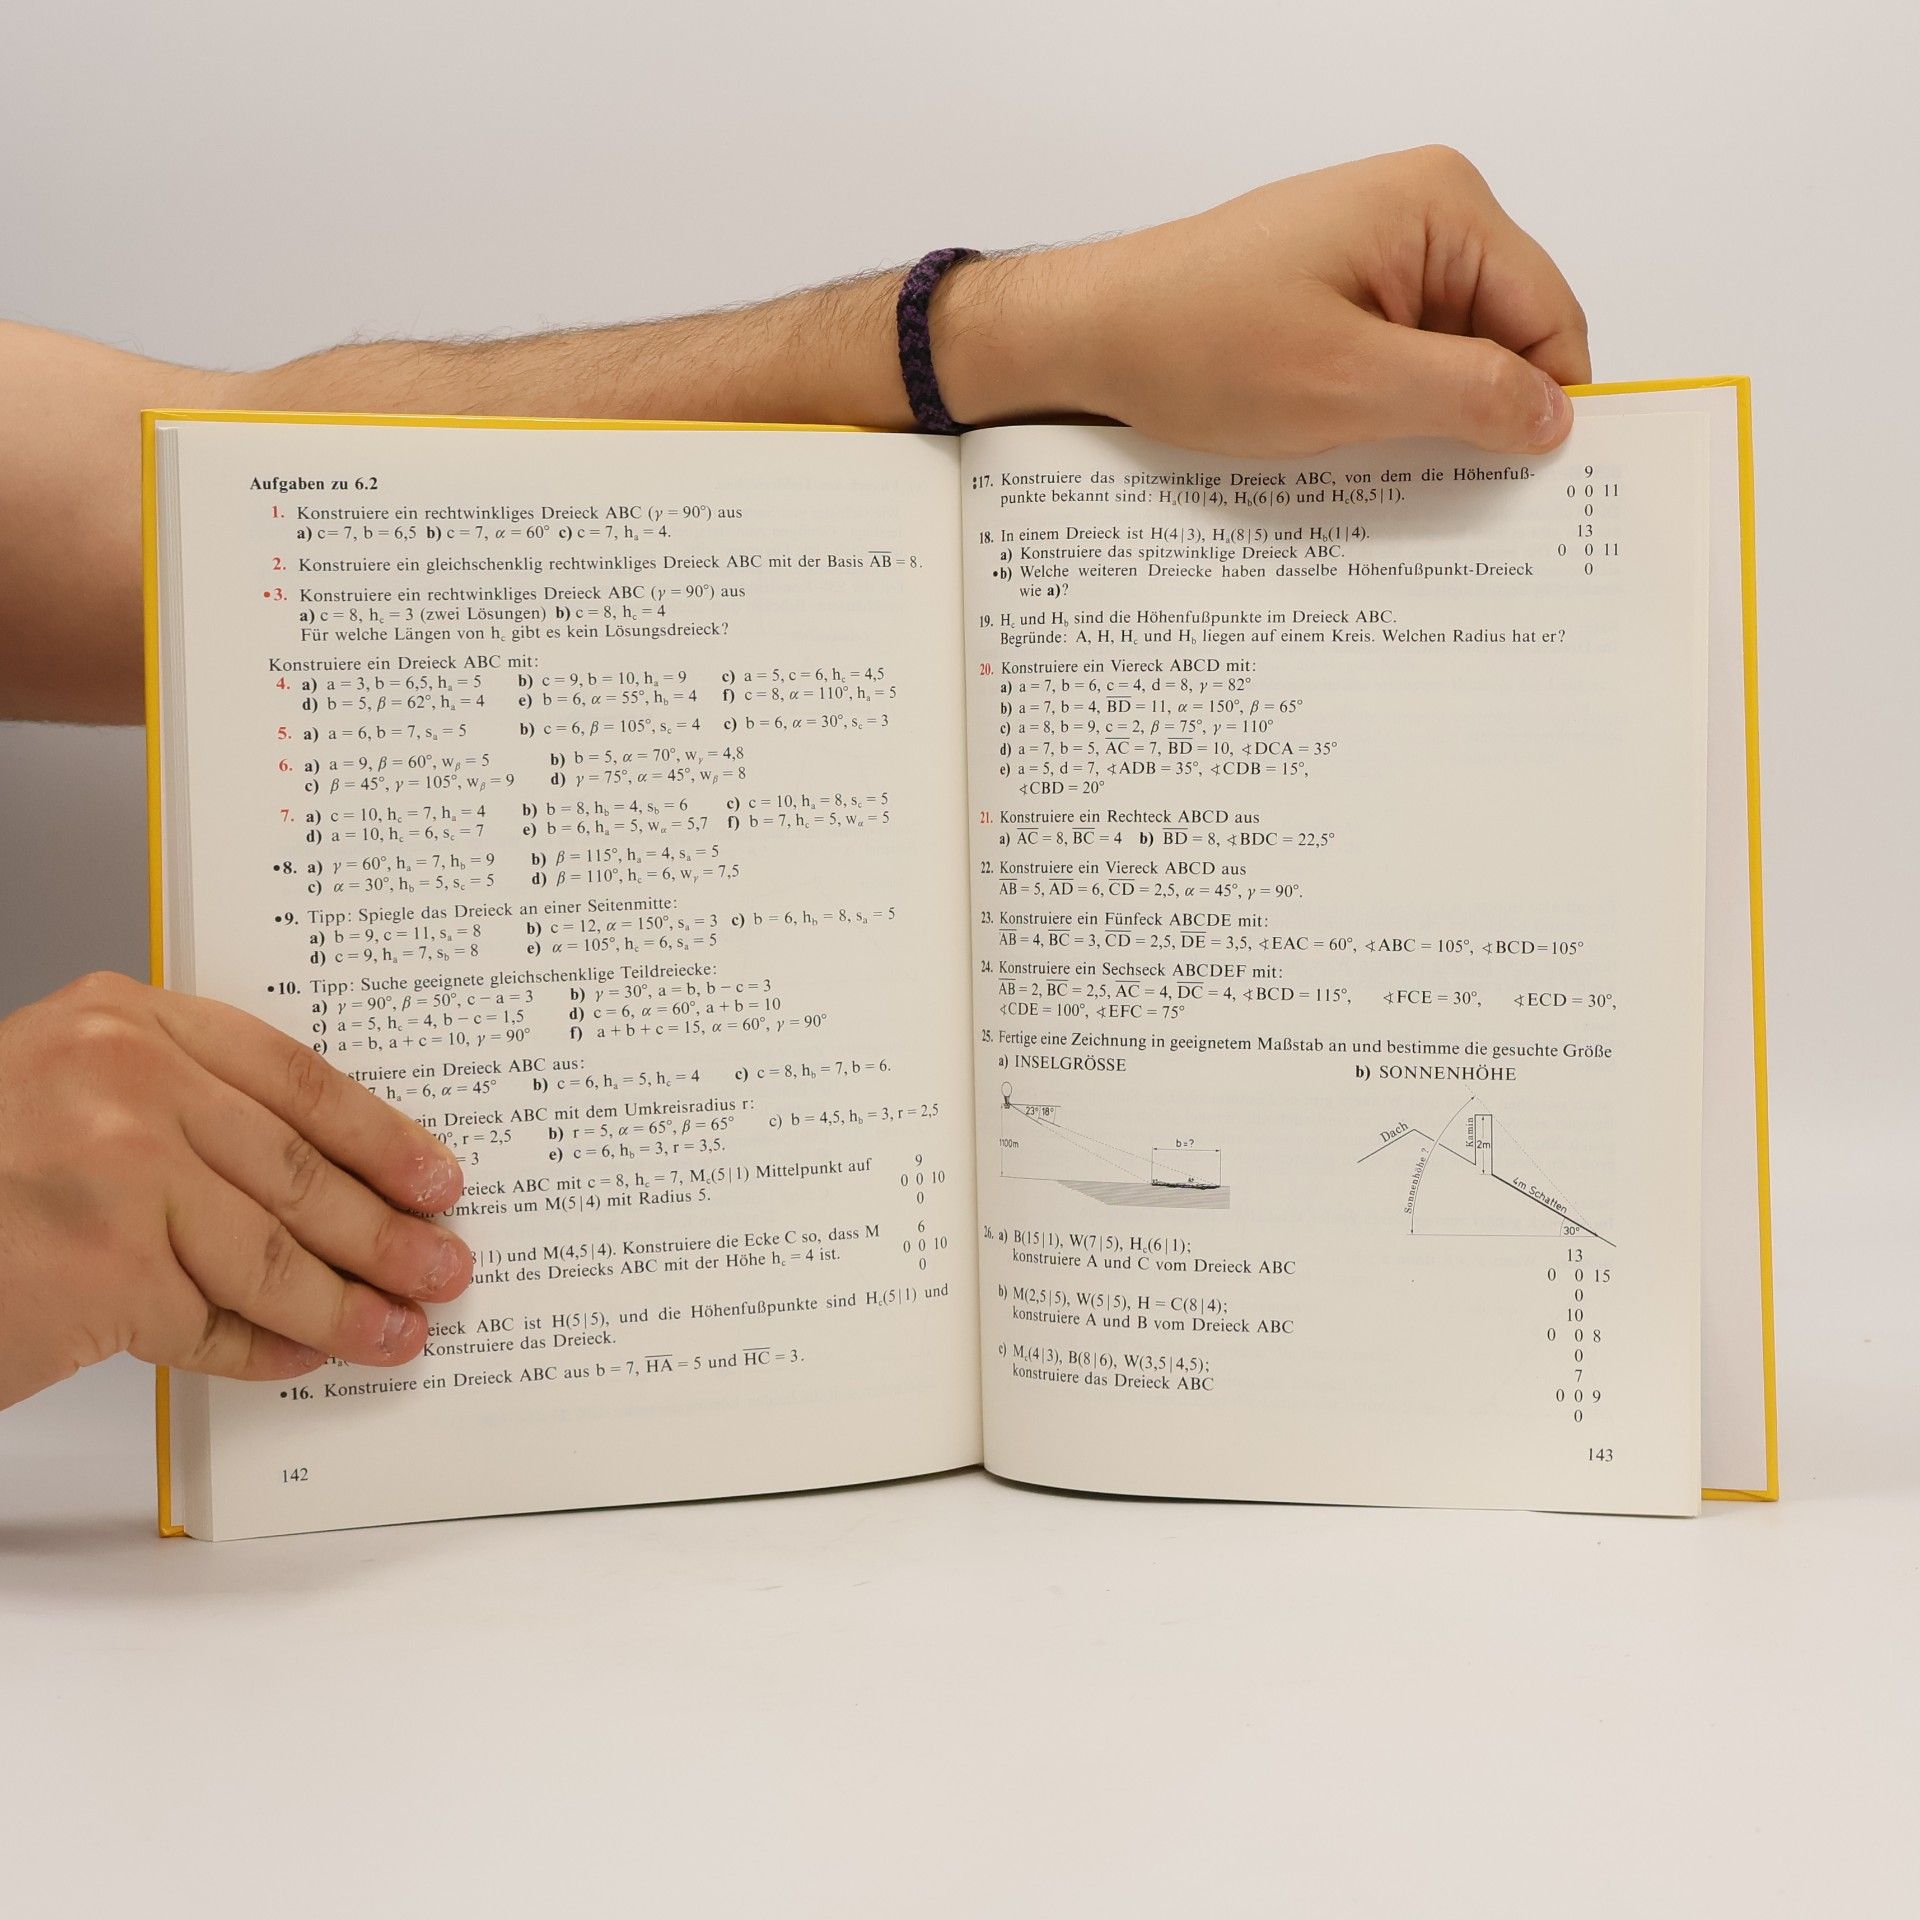 Aufgaben zu 6.2
1. Konstruiere ein rechtwinkliges Dreieck ABC (γ = 90°) aus
a) c = 7, b = 6,5 b) c = 7, α = 60° c) c = 7, hₐ = 4.
2. Konstruiere ein gleichschenklig rechtwinkliges Dreieck ABC mit der Basis A̅B̅ = 8.
•3. Konstruiere ein rechtwinkliges Dreieck ABC (γ = 90°) aus
a) c = 8, h_c = 3 (zwei Lösungen) b) c = 8, h_c = 4
Für welche Längen von h_c gibt es kein Lösungsdreieck?
Konstruiere ein Dreieck ABC mit:
4. a) a = 3, b = 6,5, hₐ = 5 b) c = 9, b = 10, hₐ = 9 c) a = 5, c = 6, h_c = 4,5
d) b = 5, β = 62°, hₐ = 4 e) b = 6, α = 55°, h_b = 4 f) c = 8, α = 110°, hₐ = 5
5. a) a = 6, b = 7, sₐ = 5 b) c = 6, β = 105°, s_c = 4 c) b = 6, α = 30°, s_c = 3
6. a) a = 9, β = 60°, w_β = 5 b) b = 5, α = 70°, w_γ = 4,8
c) β = 45°, γ = 105°, w_β = 9 d) γ = 75°, α = 45°, w_β = 8
7. a) c = 10, h_c = 7, hₐ = 4 b) b = 8, h_b = 4, s_b = 6 c) c = 10, hₐ = 8, s_c = 5
d) a = 10, h_c = 6, s_c = 7 e) b = 6, hₐ = 5, w_α = 5,7 f) b = 7, h_c = 5, w_α = 5
•8. a) γ = 60°, hₐ = 7, h_b = 9 b) β = 115°, hₐ = 4, sₐ = 5
c) α = 30°, h_b = 5, s_c = 5 d) β = 110°, h_c = 6, w_γ = 7,5
•9. Tipp: Spiegle das Dreieck an einer Seitenmitte:
a) b = 9, c = 11, sₐ = 8 b) c = 12, α = 150°, sₐ = 3 c) b = 6, h_b = 8, sₐ = 5
d) c = 9, hₐ = 7, s_b = 8 e) α = 105°, h_c = 6, sₐ = 5
•10. Tipp: Suche geeignete gleichschenklige Teildreiecke:
a) γ = 90°, β = 50°, c − a = 3 b) γ = 30°, a = b, b − c = 3
c) a = 5, h_c = 4, b − c = 1,5 d) c = 6, α = 60°, a + b = 10
e) a = b, a + c = 10, γ = 90° f) a + b + c = 15, α = 60°, γ = 90°
struiere ein Dreieck ABC aus:
7, hₐ = 6, α = 45° b) c = 6, hₐ = 5, h_c = 4 c) c = 8, h_b = 7, b = 6.
ein Dreieck ABC mit dem Umkreisradius r:
0°, r = 2,5 b) r = 5, α = 65°, β = 65° c) b = 4,5, h_b = 3, r = 2,5
= 3 e) c = 6, h_b = 3, r = 3,5.
reieck ABC mit c = 8, h_c = 7, M_c(5|1) Mittelpunkt auf
Umkreis um M(5|4) mit Radius 5.
9
0 0 10
0
8|1) und M(4,5|4). Konstruiere die Ecke C so, dass M
punkt des Dreiecks ABC mit der Höhe h_c = 4 ist.
6
0 0 10
0
eieck ABC ist H(5|5), und die Höhenfußpunkte sind H_c(5|1) und
Hₐ( Konstruiere das Dreieck.
•16. Konstruiere ein Dreieck ABC aus b = 7, H̅A̅ = 5 und H̅C̅ = 3.
142
:17. Konstruiere das spitzwinklige Dreieck ABC, von dem die Höhenfuß-
punkte bekannt sind: Hₐ(10|4), H_b(6|6) und H_c(8,5|1).
9
0 0 11
0
18. In einem Dreieck ist H(4|3), Hₐ(8|5) und H_b(1|4).
a) Konstruiere das spitzwinklige Dreieck ABC.
•b) Welche weiteren Dreiecke haben dasselbe Höhenfußpunkt-Dreieck
wie a)?
13
0 0 11
0
19. H_c und H_b sind die Höhenfußpunkte im Dreieck ABC.
Begründe: A, H, H_c und H_b liegen auf einem Kreis. Welchen Radius hat er?
20. Konstruiere ein Viereck ABCD mit:
a) a = 7, b = 6, c = 4, d = 8, γ = 82°
b) a = 7, b = 4, B̅D̅ = 11, α = 150°, β = 65°
c) a = 8, b = 9, c = 2, β = 75°, γ = 110°
d) a = 7, b = 5, A̅C̅ = 7, B̅D̅ = 10, ∢DCA = 35°
e) a = 5, d = 7, ∢ADB = 35°, ∢CDB = 15°,
∢CBD = 20°
21. Konstruiere ein Rechteck ABCD aus
a) A̅C̅ = 8, B̅C̅ = 4 b) B̅D̅ = 8, ∢BDC = 22,5°
22. Konstruiere ein Viereck ABCD aus
A̅B̅ = 5, A̅D̅ = 6, C̅D̅ = 2,5, α = 45°, γ = 90°.
23. Konstruiere ein Fünfeck ABCDE mit:
A̅B̅ = 4, B̅C̅ = 3, C̅D̅ = 2,5, D̅E̅ = 3,5, ∢EAC = 60°, ∢ABC = 105°, ∢BCD = 105°
24. Konstruiere ein Sechseck ABCDEF mit:
A̅B̅ = 2, B̅C̅ = 2,5, A̅C̅ = 4, D̅C̅ = 4, ∢BCD = 115°, ∢FCE = 30°, ∢ECD = 30°,
∢CDE = 100°, ∢EFC = 75°
25. Fertige eine Zeichnung in geeignetem Maßstab an und bestimme die gesuchte Größe
a) INSELGRÖSSE
23° 18°
1100m
b = ?
b) SONNENHÖHE
Dach
Kamin
2m
Sonnenhöhe ?
4m Schatten
30°
26. a) B(15|1), W(7|5), H_c(6|1);
konstruiere A und C vom Dreieck ABC
13
0 0 15
0
b) M(2,5|5), W(5|5), H = C(8|4);
konstruiere A und B vom Dreieck ABC
10
0 0 8
0
c) M_c(4|3), B(8|6), W(3,5|4,5);
konstruiere das Dreieck ABC
7
0 0 9
0
143